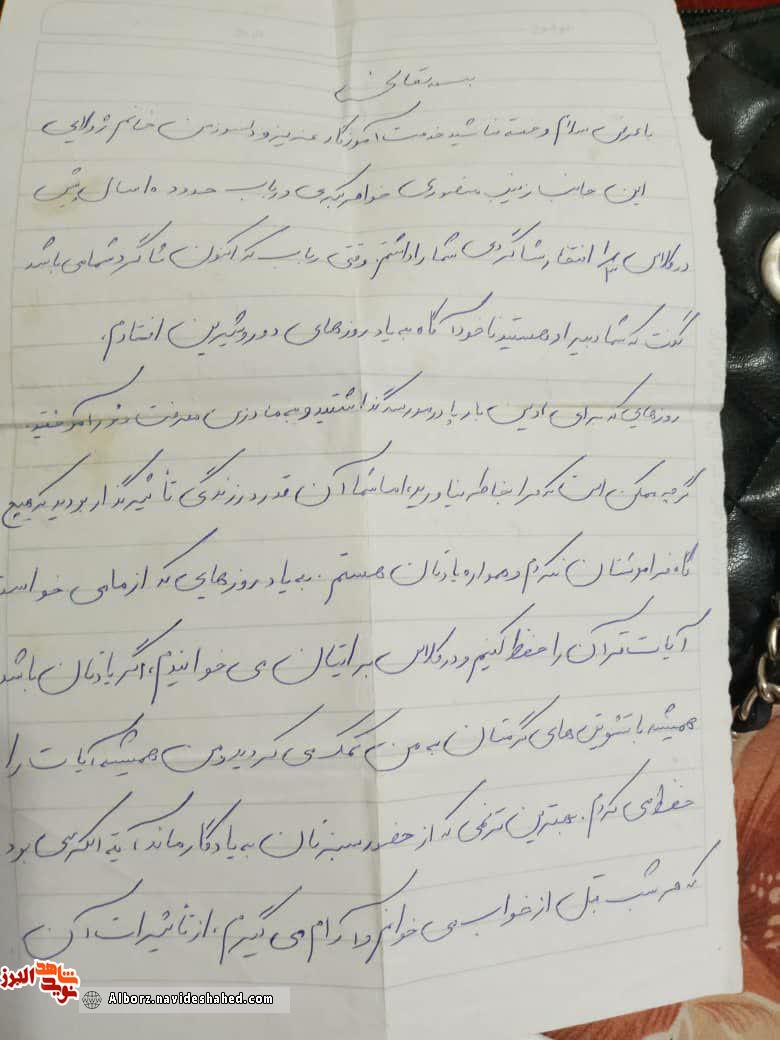 بسمه تعالی
با عرض سلام و خسته نباشید خدمت آموزگار عزیز و دلسوزمن خانم ژولایی
این جانب زینب منصوری خواهر کبری درباب حدود ۱۰ سال پیش
در کلاس ۱/۳ افتخار شاگردی شما را داشتم وقتی رباب که اکنون شاگرد شما می باشد
گفت که شما دبیر او هستید ناخودآگاه به یاد روزهای دور و شیرین افتادم.
روزهایی که برای اولین بار پا در مدرسه گذاشتید و به ما درس معرفت و را آموختید.
گرچه ممکن است که مرا بخاطر نیاورید، اما شما آن قدر در زندگی تأثیرگذار بودید که هیچ
گاه فراموشتان نکردم و همواره یادتان هستم. به یاد روزهایی که از ما می خواست
آیات قرآن را حفظ کنیم و در کلاس برایتان می خواندیم، اگر یادتان باشد
همیشه با تشویق های گرمتان به من کمک می کردید و من همیشه آیات را
حفظ می کردم. بهترین که از حضور سبزتان به یادگار ماند، آیة الکرسی بود
که هر شب قبل از خواب می خوانم و آرام می گیرم، از تأثیرات آن
نوید شاهد البرز
Alborz.navideshahed.com